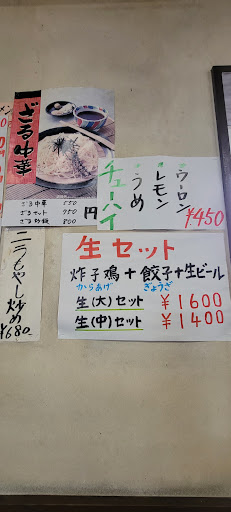 ざる中華
ざる中華 550
ざるセット 950
ざる炒飯 800
円
チューハイ
・ウーロン
・レモン
・うめ
¥450
生セット
炸子鶏＋餃子＋生ビール
からあげ ぎょうざ
生(大)セット ¥1600
生(中)セット ¥1400
ニラもやし炒め
¥680